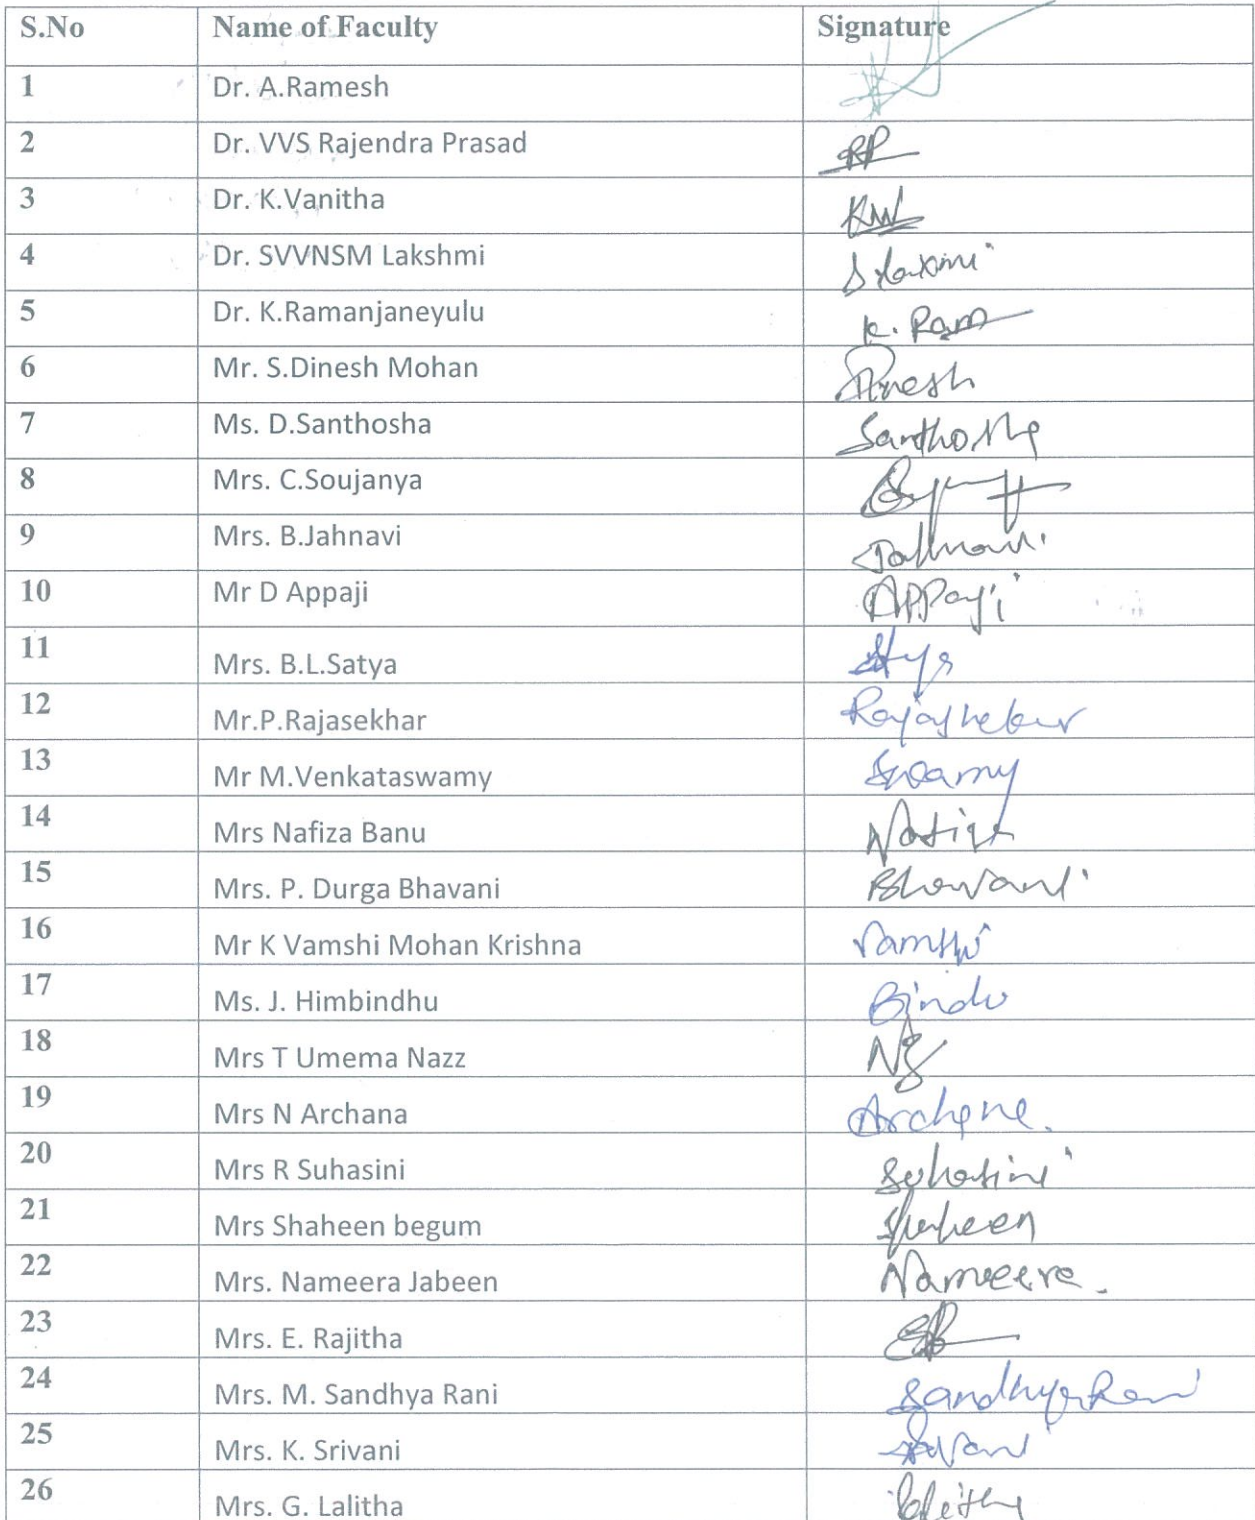 S.No Name of Faculty Signature
1 Dr. A.Ramesh
2 Dr. VVS Rajendra Prasad RP
3 Dr. K.Vanitha
4 Dr. SVVNSM Lakshmi
5 Dr. K.Ramanjaneyulu K. Ram
6 Mr. S.Dinesh Mohan Dinesh
7 Ms. D.Santhosha Santhosha
8 Mrs. C.Soujanya
9 Mrs. B.Jahnavi Jahnavi
10 Mr D Appaji Appaji
11 Mrs. B.L.Satya
12 Mr.P.Rajasekhar Rajashekar
13 Mr M.Venkataswamy Swamy
14 Mrs Nafiza Banu Nafiza
15 Mrs. P. Durga Bhavani Bhavani
16 Mr K Vamshi Mohan Krishna Vamshi
17 Ms. J. Himbindhu Bindu
18 Mrs T Umema Nazz
19 Mrs N Archana Archana.
20 Mrs R Suhasini Suhasini
21 Mrs Shaheen begum Shaheen
22 Mrs. Nameera Jabeen Nameera.
23 Mrs. E. Rajitha
24 Mrs. M. Sandhya Rani Sandhya Rani
25 Mrs. K. Srivani
26 Mrs. G. Lalitha Lalitha